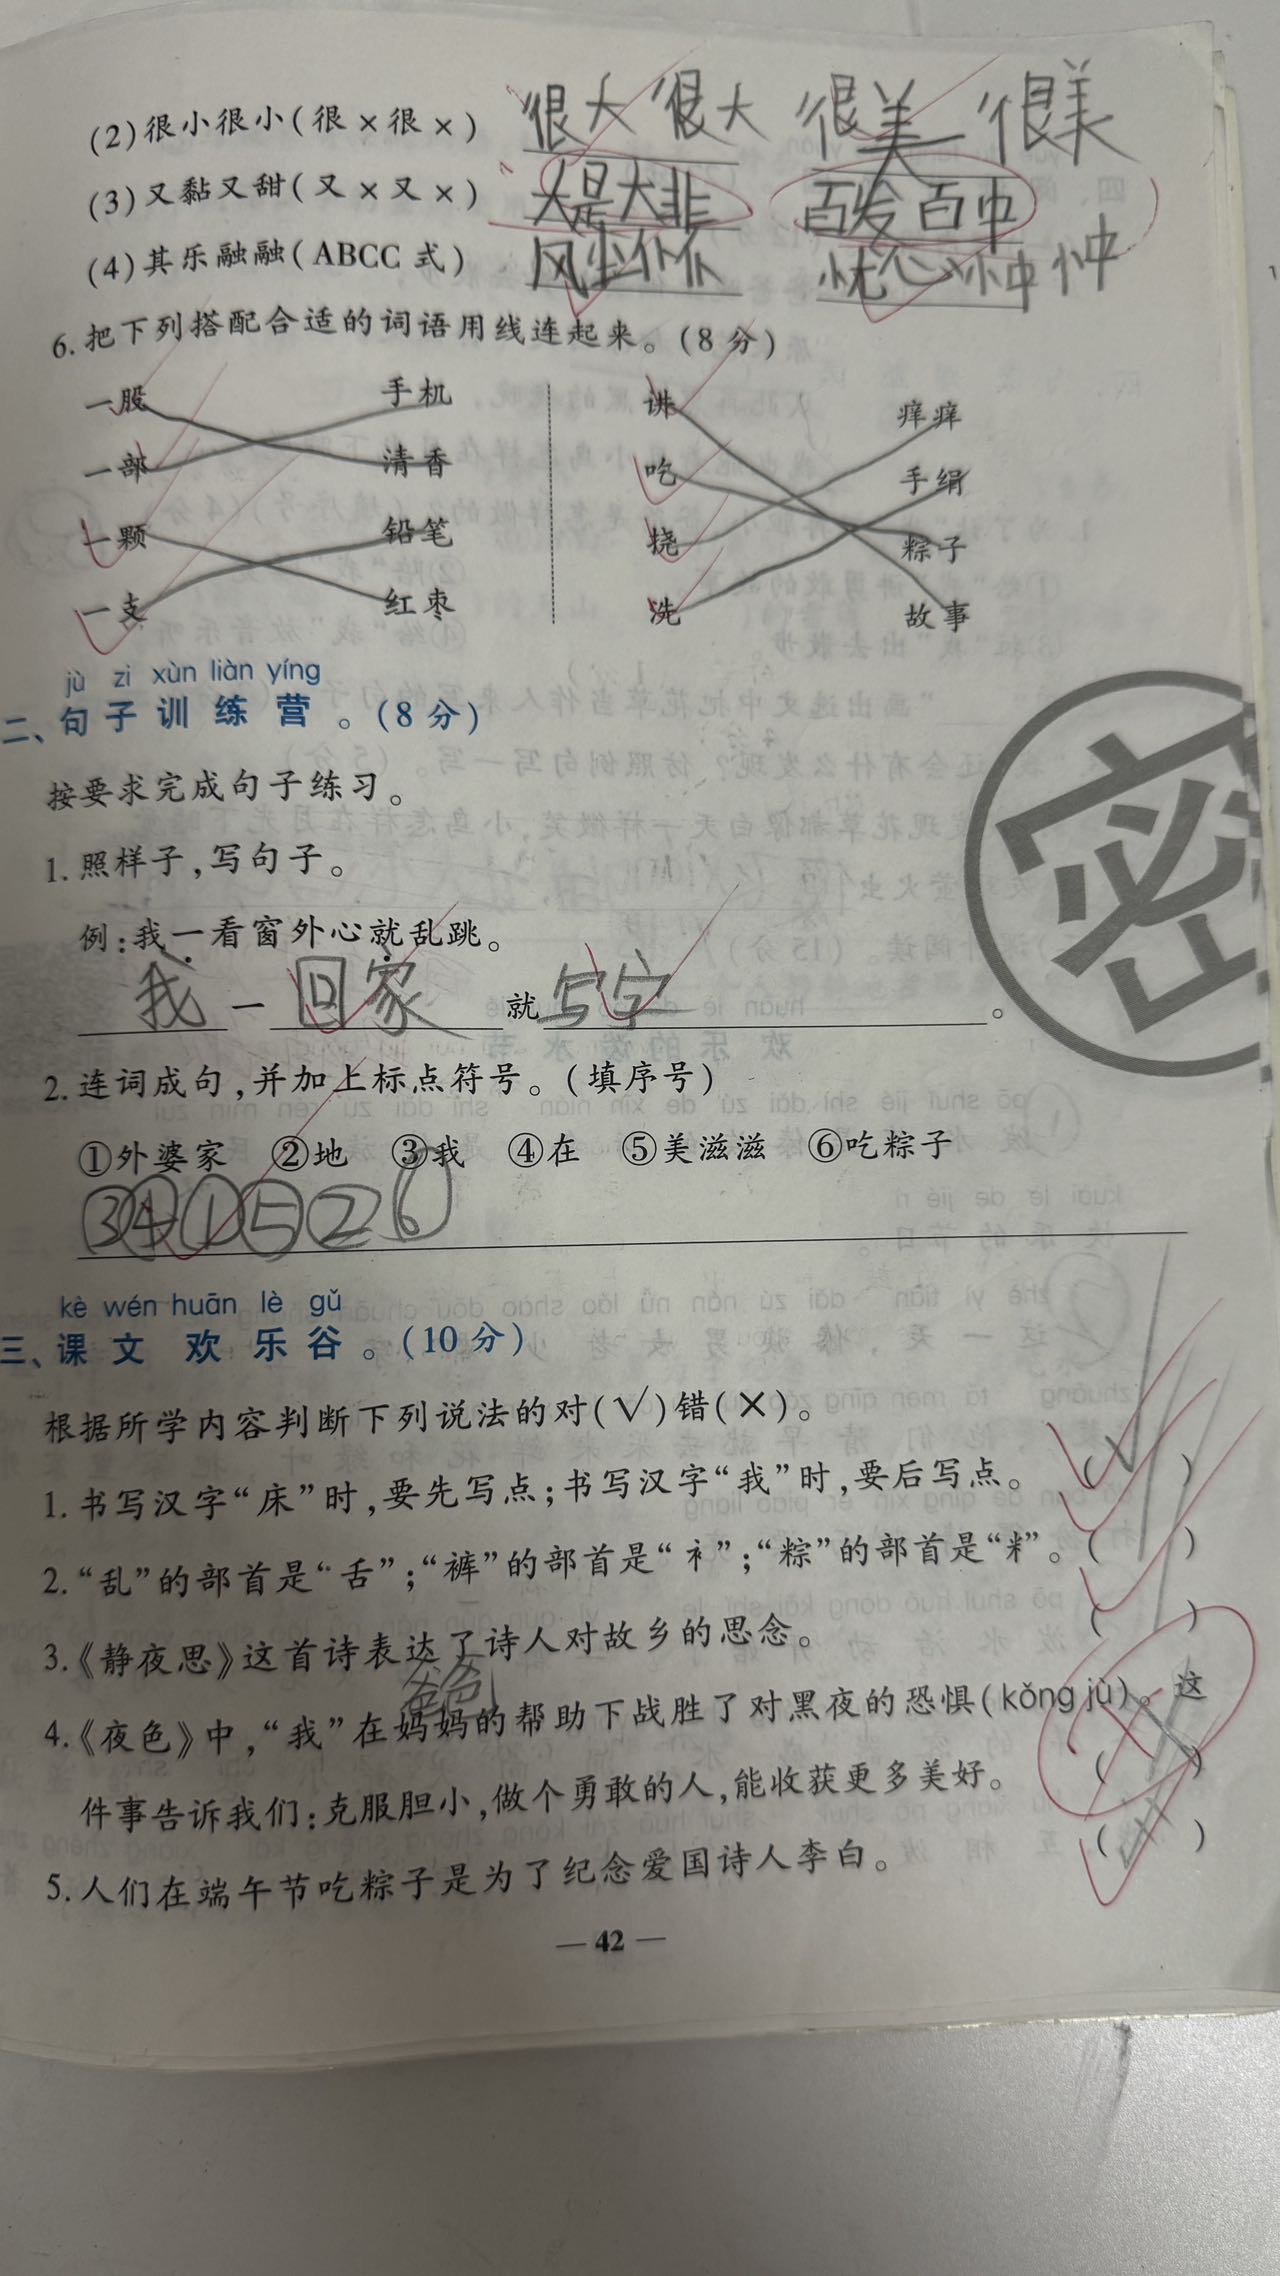 (2)很小很小(很×很×) 很大很大 很美很美
(3)又黏又甜(又×又×) 大是大非 百发百中
(4)其乐融融(ABCC式) 风尘仆仆 忧心忡忡
6.把下列搭配合适的词语用线连起来。(8分)
一股 手机 讲 痒痒
一部 清香 吃 手绢
一颗 铅笔 挠 粽子
一支 红枣 洗 故事
jù zi xùn liàn yíng
二、句子训练营。(8分)
按要求完成句子练习。
1.照样子,写句子。
例:我一看窗外心就乱跳。
我一回家就写字。
2.连词成句,并加上标点符号。(填序号)
①外婆家 ②地 ③我 ④在 ⑤美滋滋 ⑥吃粽子
③④①⑤②⑥
kè wén huān lè gǔ
三、课文欢乐谷。(10分)
根据所学内容判断下列说法的对(√)错(×)。
1.书写汉字“床”时,要先写点;书写汉字“我”时,要后写点。(√)
2.“乱”的部首是“舌”;“裤”的部首是“衤”;“粽”的部首是“米”。( )
3.《静夜思》这首诗表达了诗人对故乡的思念。( )
爸爸
4.《夜色》中,“我”在妈妈的帮助下战胜了对黑夜的恐惧(kǒng jù)。这
件事告诉我们:克服胆小,做个勇敢的人,能收获更多美好。( )
5.人们在端午节吃粽子是为了纪念爱国诗人李白。(×)
— 42 —
密